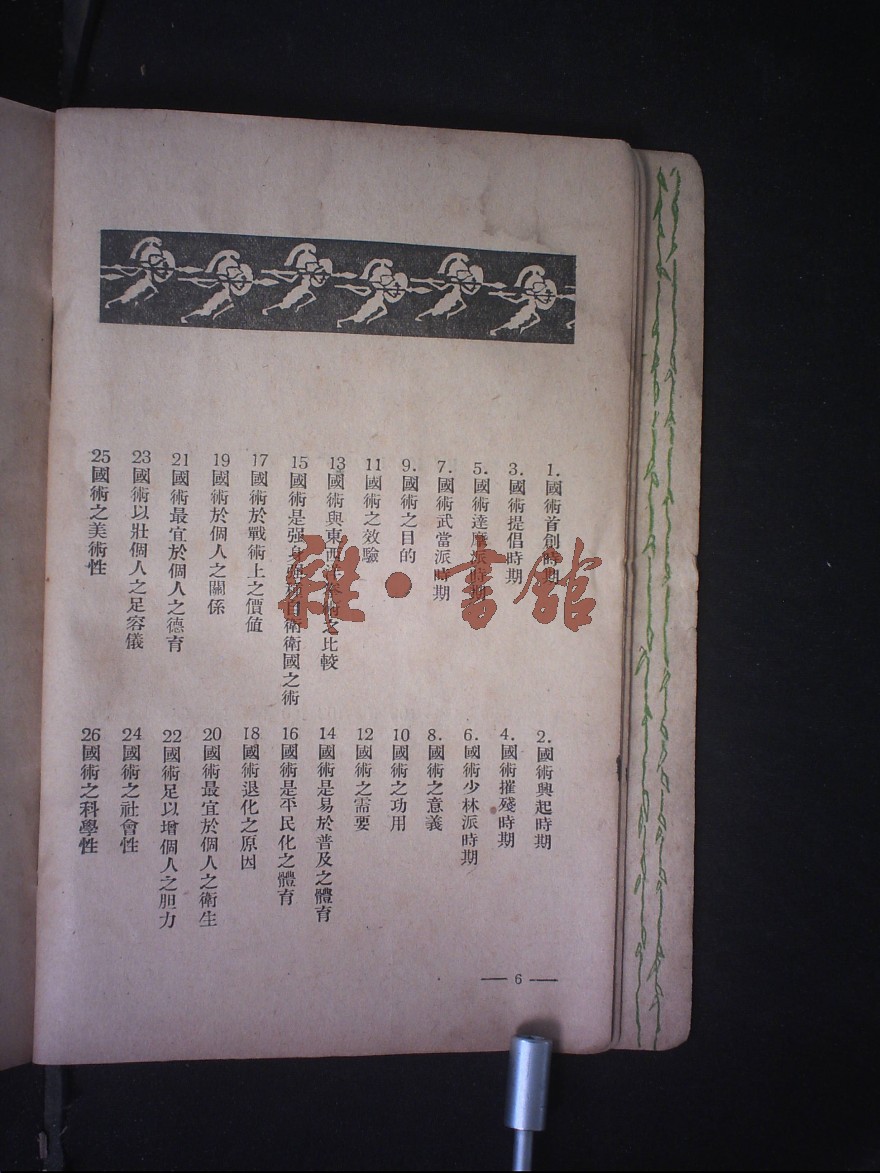 1.國術首創時期
2.國術興起時期
3.國術提倡時期
4.國術摧殘時期
5.國術達摩派時期
6.國術少林派時期
7.國術武當派時期
8.國術之意義
9.國術之目的
10國術之功用
11國術之效驗
12國術之需要
13國術與東西洋拳術之比較
14國術是易於普及之體育
15國術是强身强種自衛衛國之術
16國術是平民化之體育
17國術於戰術上之價値
18國術退化之原因
19國術於個人之關係
20國術最宜於個人之衛生
21國術最宜於個人之德育
22國術足以增個人之胆力
23國術以壯個人之足容儀
24國術之社會性
25國術之美術性
26國術之科學性
— 6 —
雜·書館